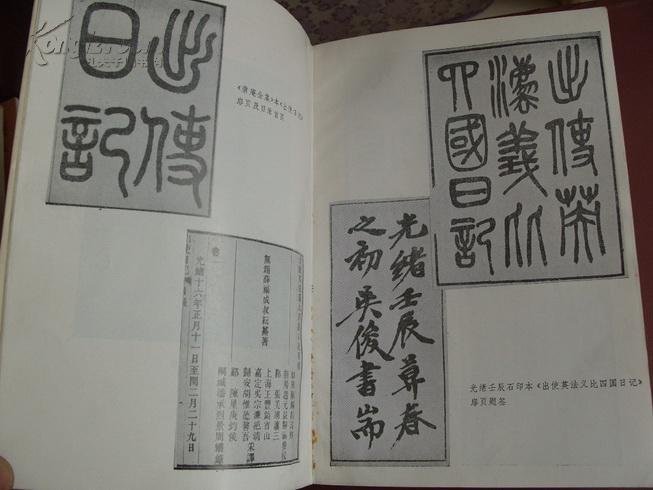 出使
日記
《庸庵全集》本《出使日记》
扉页及日记首页
無錫薛福成叔耘纂著
上海王豐鎬省山
嘉定吳宗濂挹清
卷一
光緒十六年正月十一日至閏二月二十九日
出使英
灋義比
四國日記
光緒壬辰莫春
之初吳俊書耑
光绪壬辰石印本《出使英法义比四国日记》
扉页题签